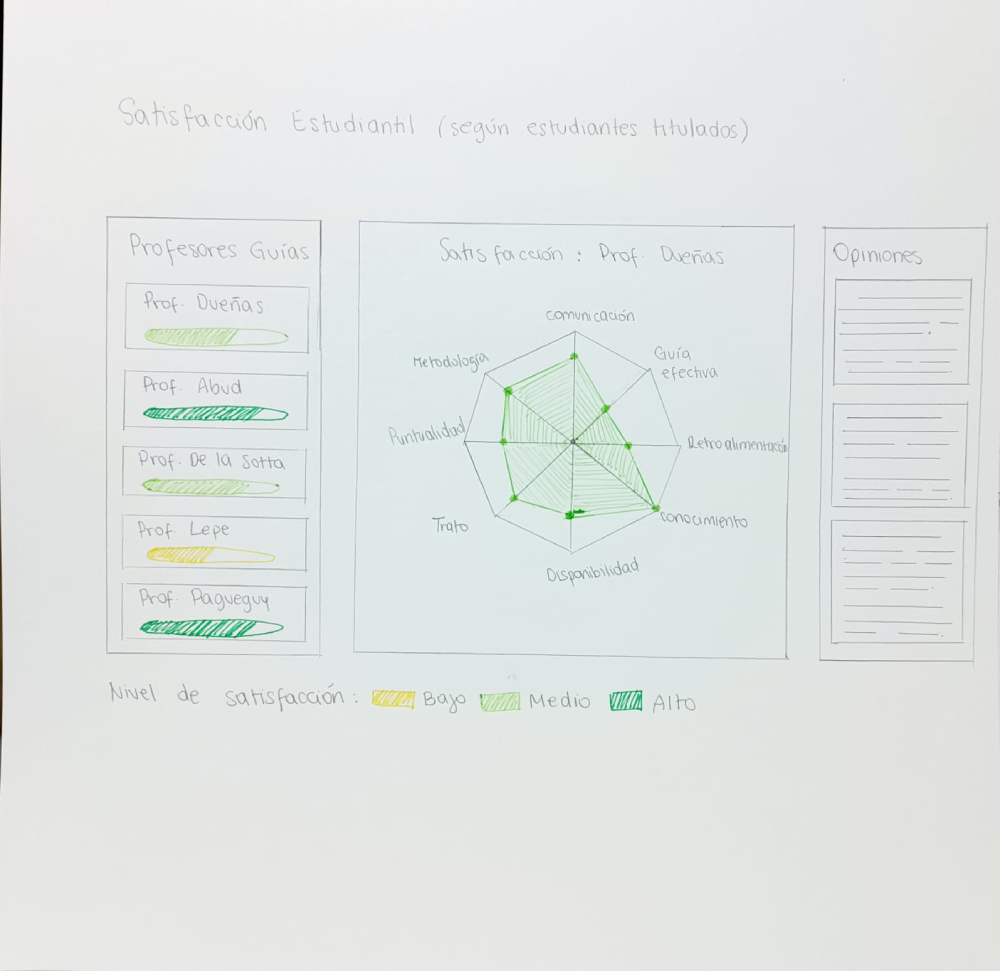 Satisfacción Estudiantil (según estudiantes titulados)
Profesores Guías
Prof. Dueñas
Prof. Abud
Prof. De la Sotta
Prof Lepe
Prof. Pagueguy
Satisfacción : Prof. Dueñas
comunicación
Guía
efectiva
Retroalimentación
conocimiento
Disponibilidad
Trato
Puntualidad
Metodología
Opiniones
Nivel de satisfacción : Bajo Medio Alto